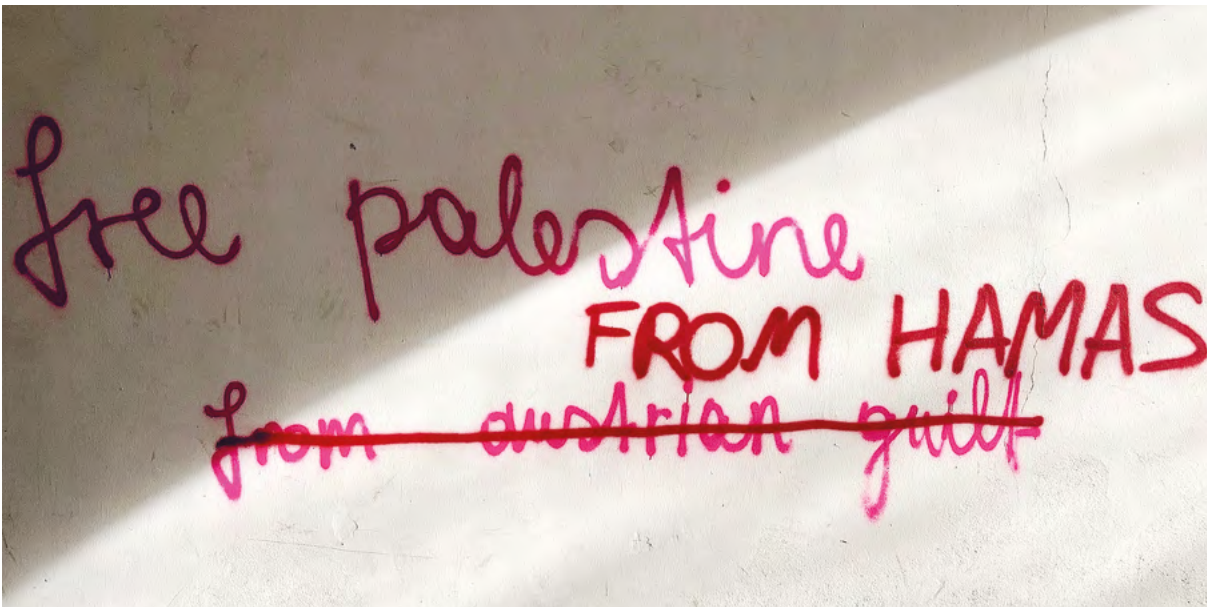 free palestine
FROM HAMAS
from austrian guilt